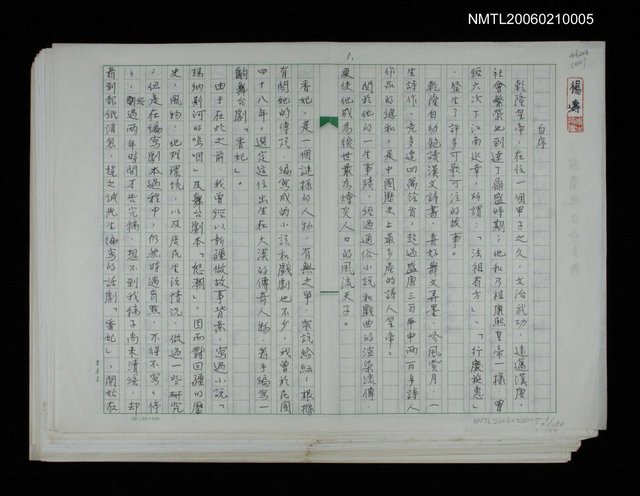 NMTL20060210005
1.
自序
乾隆皇帝，在位一個甲子之久，文治武功，遠邁漢唐，
社會繁榮也到達了鼎盛時期；他和乃祖康熙皇帝一樣，曾
經六次下江南巡幸，所謂：「法祖省方」、「行慶施惠」
，發生了許多可歌可泣的故事。
乾隆自幼飽讀漢文詩書，喜好舞文弄墨，吟風賞月，一
生詩作，竟多達四萬餘首，超過盛唐三百年中兩百多詩人
作品的總和，是中國歷史上最多產的詩人皇帝。
關於他的一生事蹟，經過通俗小說和戲曲的渲染流傳，
更使他成為後世最為膾炙人口的風流天子。
香妃，是一個謎樣的人物，有無之中，眾說紛紜；根據
有關她的傳說，編寫成的小說和戲劇也不少，我曾於民國
四十八年，選定這位出生在大漠的傳奇人物，著手編寫一
齣舞台劇「香妃」。
由于在此之前，我曾經以新疆做故事背景，寫過小說「
瑪納斯河的嗚咽」及舞台劇本「怒潮」，因而對回疆的歷
史、風物、地理環境，以及居民生活情況，做過一些研究
；但是在編寫劇本過程中，仍然時遇盲點，不得不寫寫停
停，經過兩年時間才告完稿，想不到我稿子尚未清繕，却
看到報紙消息，趙之誠先生編寫的話劇「香妃」，開始在
楊濤
20×25=500
NMTL20060210005